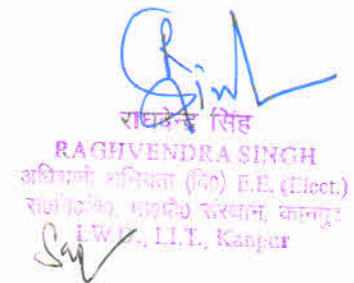 राघवेन्द्र सिंह
RAGHVENDRA SINGH
अधिशासी अभियंता (वि०) E.E. (Elect.)
संस्थान, कानपुर
I.W.D., I.I.T., Kanpur